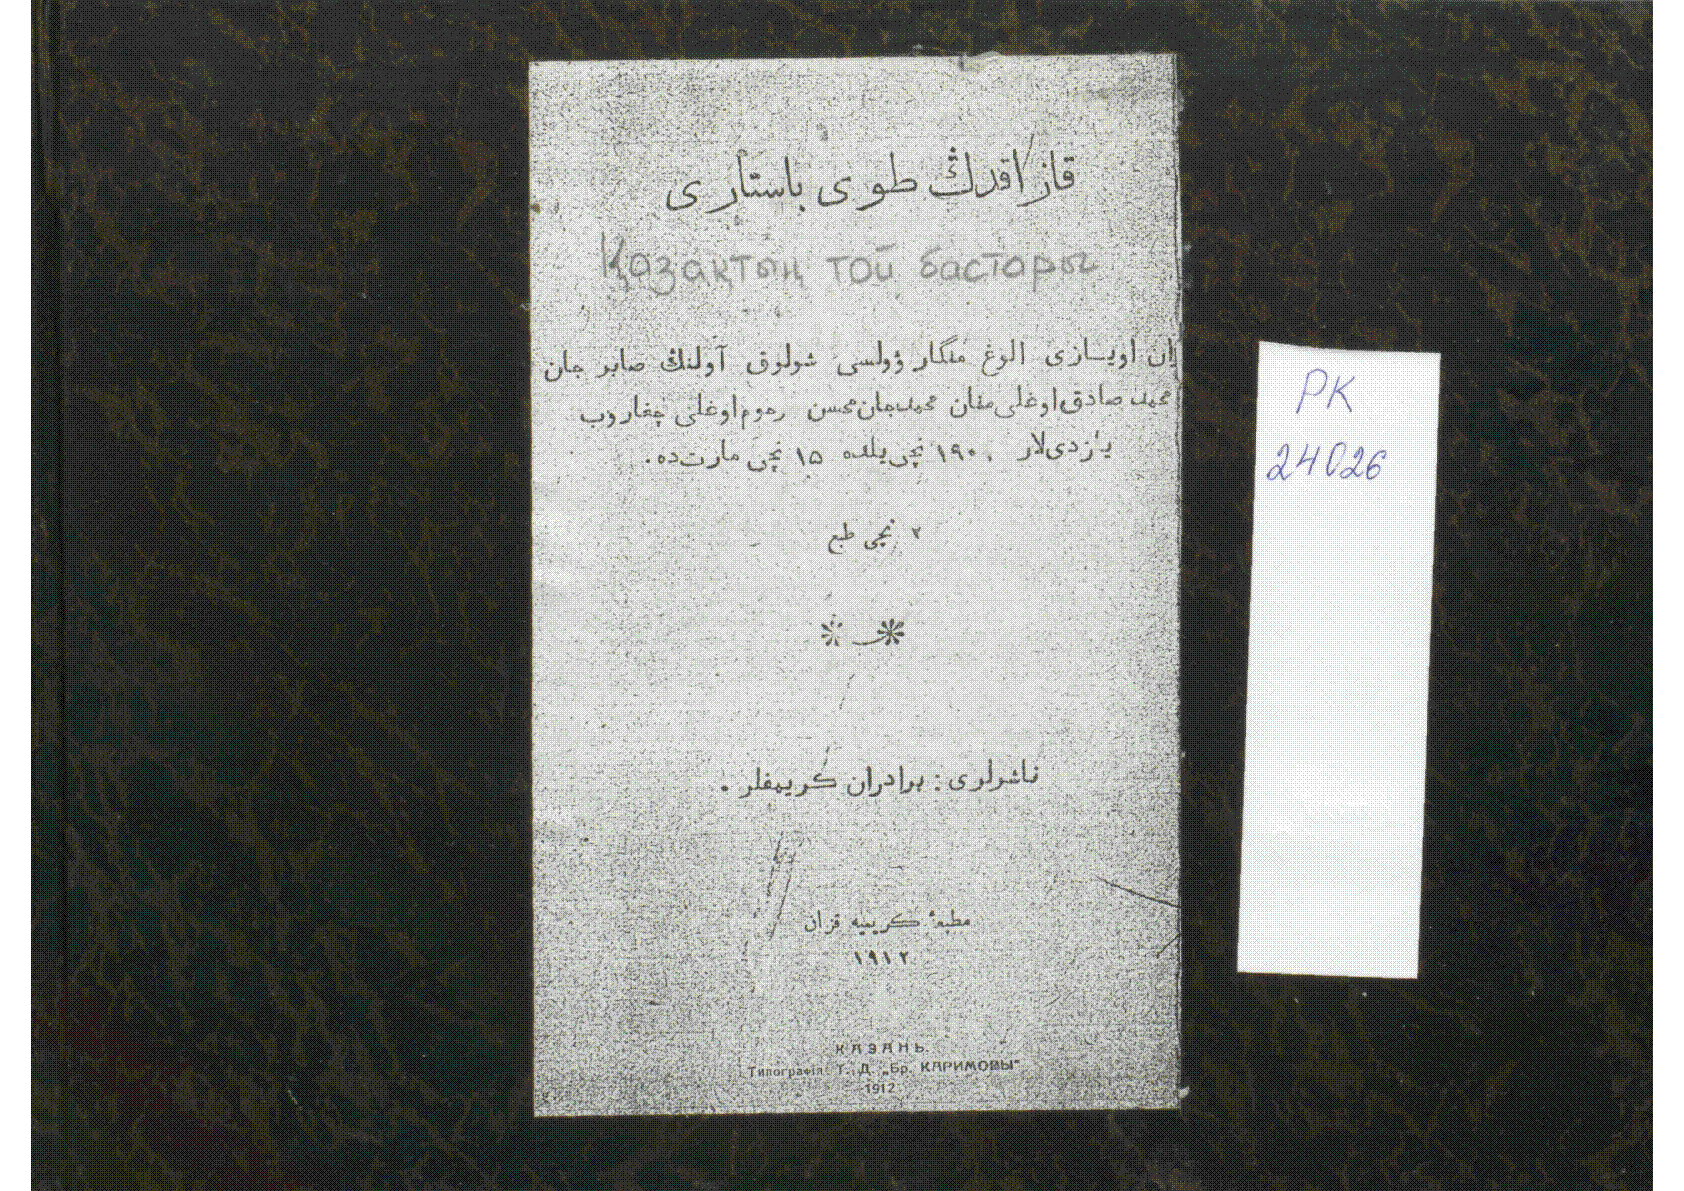 قازاقدڭ طوى باستارى
Қазақтың той бастары
اويازى الوغ منگار ۋولسى شولوق آولنڭ صابر جان
محمد صادق اوغلى محمدجان محسن اوغلى چغاروب
يازدىلار نچى يلده ١٥ نچى مارتده.
٢ نچى طبع
ناشرلرى: برادران كريمفلر.
مطبعۀ كريميه قزان
١٩١٢
КАЗАНЬ.
Типографія Т. Д. „Бр. КАРИМОВЫ"
1912
РК
24026